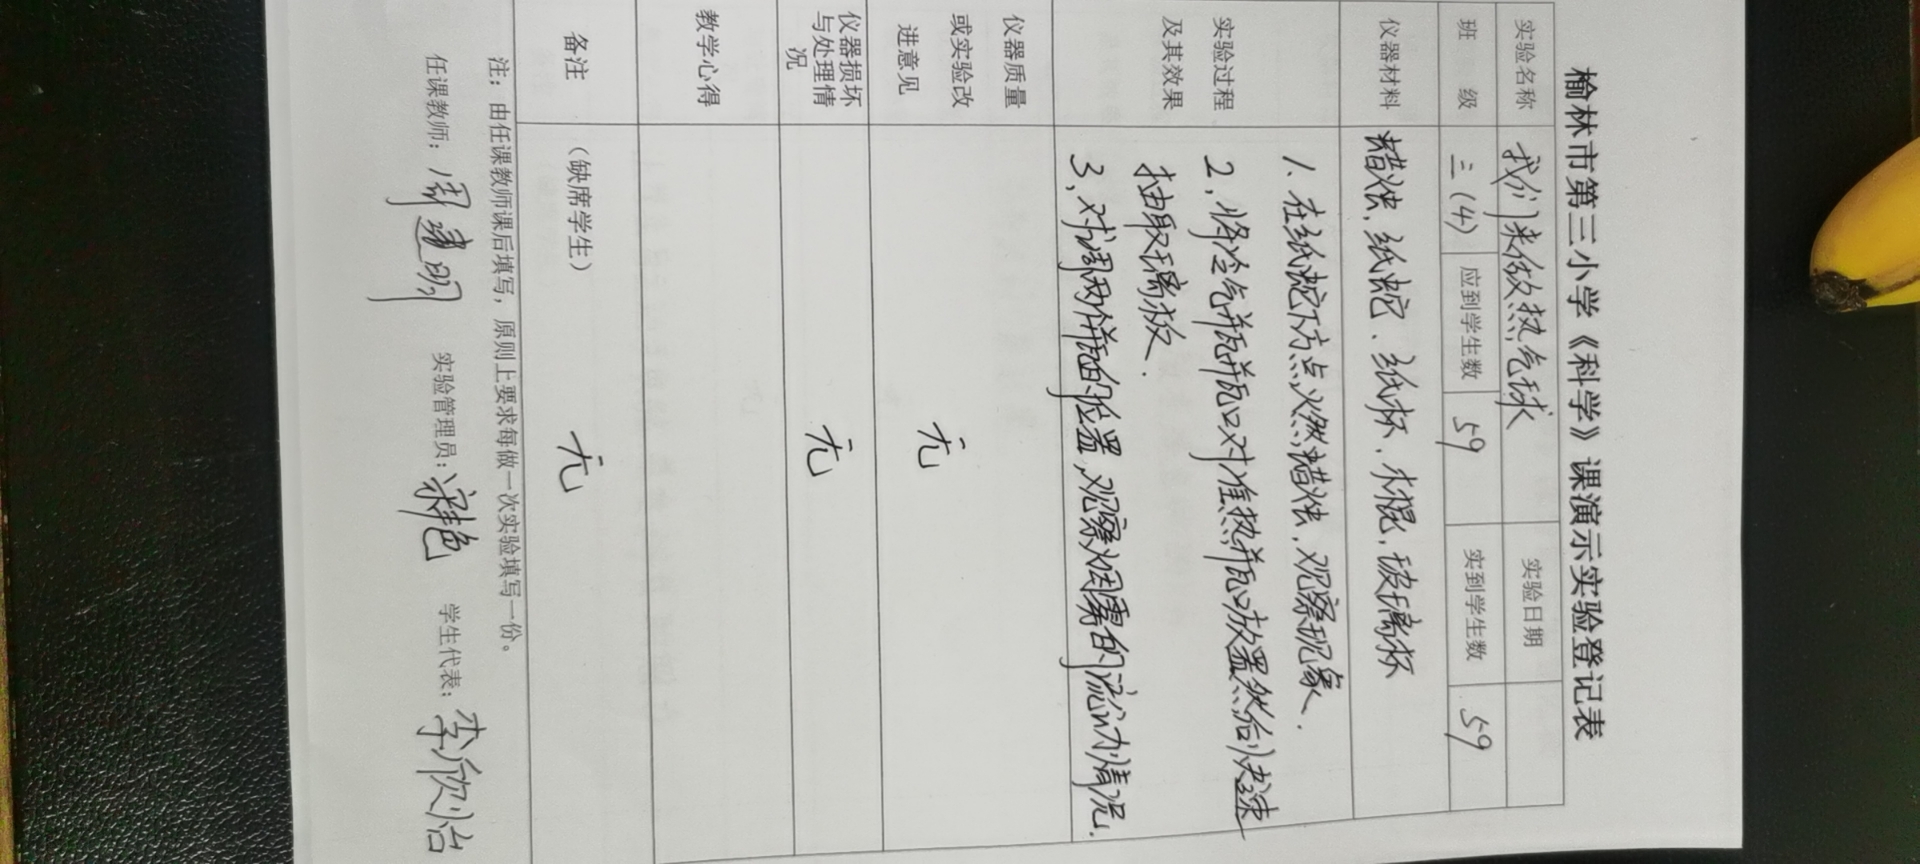 榆林市第三小学《科学》课演示实验登记表
实验名称 我们来做热气球 实验日期
班 级 三(4) 应到学生数 59 实到学生数 59
仪器材料 蜡烛,纸蛇、纸杯、木棍,玻璃杯
实验过程及其效果
1、在纸蛇下方点火燃蜡烛,观察现象.
2,将冷气瓶瓶口对准热瓶口放置然后快速
抽取璃板.
3,对调两个瓶的位置,观察烟雾的流动情况.
仪器质量或实验改进意见 无
仪器损坏与处理情况 无
教学心得
备注 (缺席学生) 无
注:由任课教师课后填写,原则上要求每做一次实验填写一份。
任课教师:周建明 实验管理员: 学生代表:李欣怡